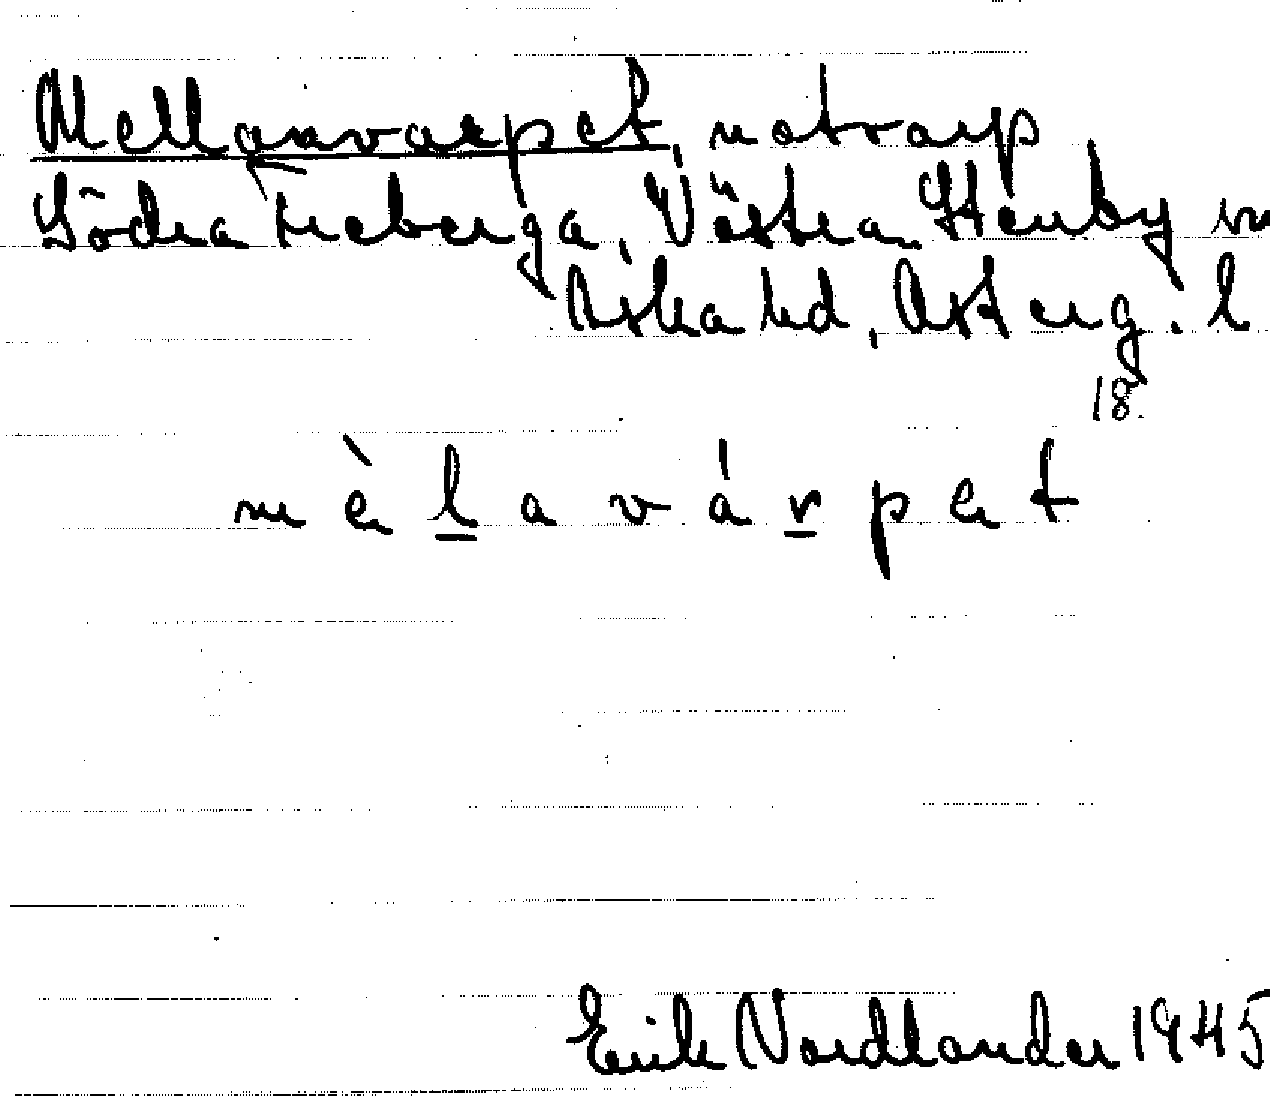 Mellanvarpet, notvarp
Södra Freberga, Västra Stenby sn
Aska hd, Östergl.
18.
mèlavárpet
Erik Nordlander 1945